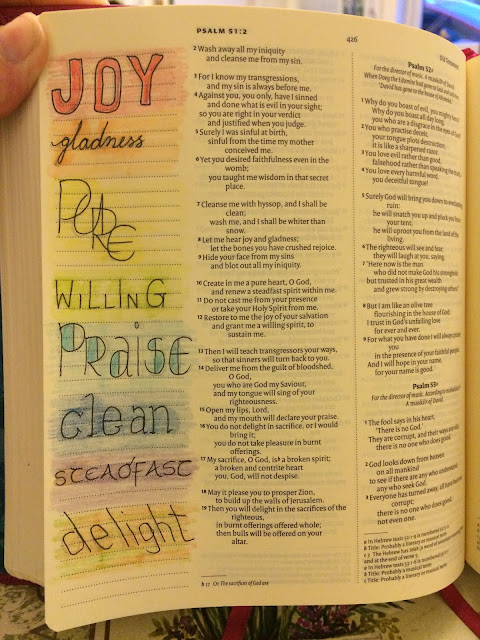 PSALM 51:2
426
JOY
gladness
PURE
WILLING
Praise
clean
STEADFAST
delight
2 Wash away all my iniquity
and cleanse me from my sin.
3 For I know my transgressions,
and my sin is always before me.
4 Against you, you only, have I sinned
and done what is evil in your sight;
so you are right in your verdict
and justified when you judge.
5 Surely I was sinful at birth,
sinful from the time my mother
conceived me.
6 Yet you desired faithfulness even in the
womb;
you taught me wisdom in that secret
place.
7 Cleanse me with hyssop, and I shall be
clean;
wash me, and I shall be whiter than
snow.
8 Let me hear joy and gladness;
let the bones you have crushed rejoice.
9 Hide your face from my sins
and blot out all my iniquity.
10 Create in me a pure heart, O God,
and renew a steadfast spirit within me.
11 Do not cast me from your presence
or take your Holy Spirit from me.
12 Restore to me the joy of your salvation
and grant me a willing spirit, to
sustain me.
13 Then I will teach transgressors your ways,
so that sinners will turn back to you.
14 Deliver me from the guilt of bloodshed,
O God,
you who are God my Saviour,
and my tongue will sing of your
righteousness.
15 Open my lips, Lord,
and my mouth will declare your praise.
16 You do not delight in sacrifice, or I would
bring it;
you do not take pleasure in burnt
offerings.
17 My sacrifice, O God, is b a broken spirit;
a broken and contrite heart
you, God, will not despise.
18 May it please you to prosper Zion,
to build up the walls of Jerusalem.
19 Then you will delight in the sacrifices of the
righteous,
in burnt offerings offered whole;
then bulls will be offered on your
altar.
b 17 Or The sacrifices of God are
Psalm 52
For the director of music. A maskil of David.
When Doeg the Edomite had gone to Saul
'David has gone to the house of Ahimelek.'
1 Why do you boast of evil, you mighty hero?
Why do you boast all day long,
you who are a disgrace in the eyes of God?
2 You who practise deceit,
your tongue plots destruction;
it is like a sharpened razor.
3 You love evil rather than good,
falsehood rather than speaking the truth.
4 You love every harmful word,
you deceitful tongue!
5 Surely God will bring you down to everlasting
ruin:
he will snatch you up and pluck you from
your tent;
he will uproot you from the land of the
living.
6 The righteous will see and fear;
they will laugh at you, saying,
7 'Here now is the man
who did not make God his stronghold
but trusted in his great wealth
and grew strong by destroying others!'
8 But I am like an olive tree
flourishing in the house of God;
I trust in God's unfailing love
for ever and ever.
9 For what you have done I will always praise
you
in the presence of your faithful people.
And I will hope in your name,
for your name is good.
Psalm 53
For the director of music. According to mahalath.
A maskil of David.
1 The fool says in his heart,
'There is no God.'
They are corrupt, and their ways are vile;
there is no one who does good.
2 God looks down from heaven
on all mankind
to see if there are any who understand,
any who seek God.
3 Everyone has turned away, all have become
corrupt;
there is no one who does good,
not even one.